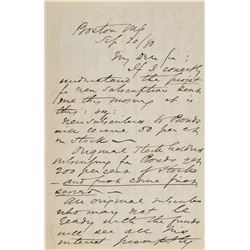 Boston Ms
Sep 20/80
My Dear Sir:
If I correctly
understand the project
for new subscription
this morning it is
this: viz:
New subscribers to Bonds
will receive 50 per ct
in Stock —
Original Stock holders
subscribing for Bonds get
200 percent of Stock
— and first come first
served —
An original subscriber
who may not be
ready with the funds
will see all his
interest promptly